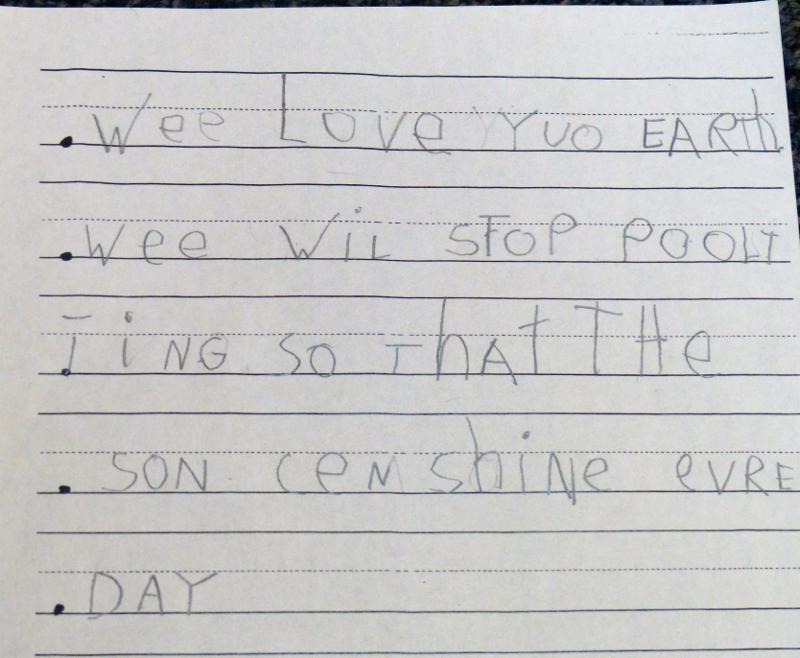 Wee Love YUO EARth.
Wee WiL STOP POOLT
TiNG SO ThAt THe
SON CeN ShiNe eVRE
DAY